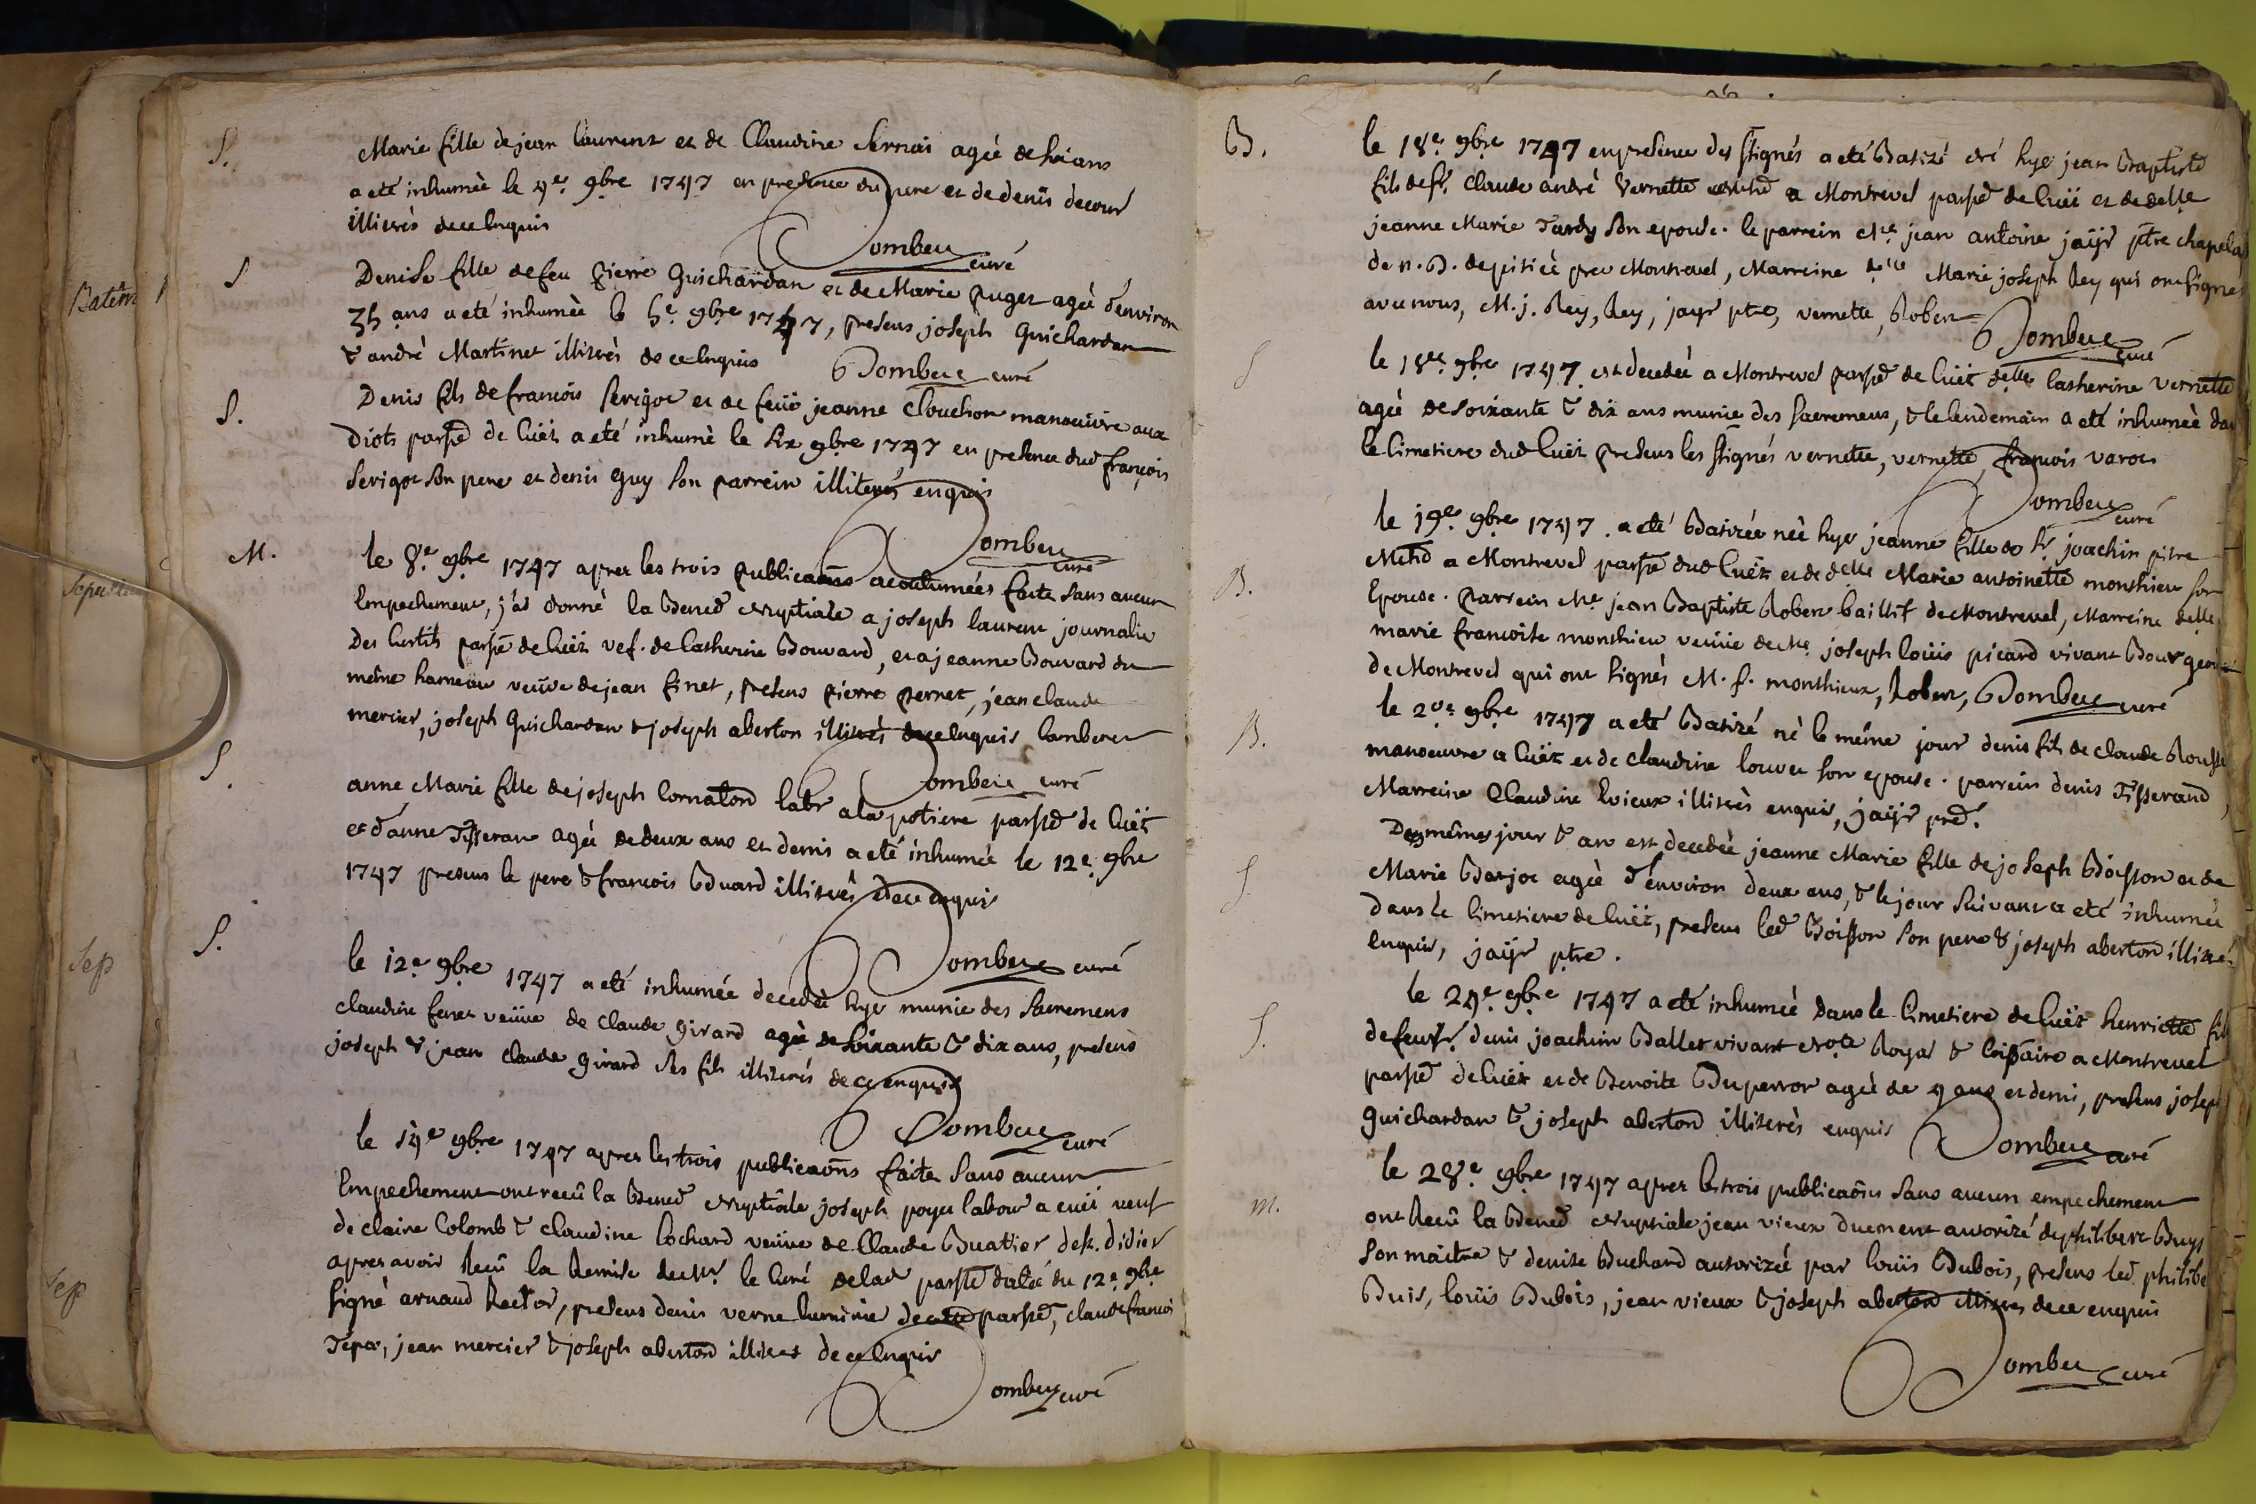 S. Marie fille de jean laurent et de Claudine Sernai agée de six ans
a eté inhumèe le 4e. 9bre 1747 en presence du pere et de denis decour
illiterès de ce Enquis
Dombeu curé
S Denise fille de feu Pierre Guichardan et de Marie Puget agée d'environ
35 ans a eté inhumèe le 5e. 9bre 1747, presens joseph Guichardan
& andrè Martinet illiterès de ce Enquis Dombeu curé
S. Denis fils de francois Serigot et de feüe jeanne Clouchon manoeuvre aux
diots parsse de Cuët a eté inhumè le six 9bre 1747 en presence dud françois
Serigot son pere et denis Guy son parrein illiterés enquis
Dombeu curé
M. le 8.e 9bre 1747 apres les trois publicaons acoutumées faite sans aucun
Empechement, j'ai donné la Bened Nuptiale a joseph laurent journalie
des Curtils parsse de Cuët vef. de Catherine Bouvard, et a jeanne Bouvard du
même hameau veuve de jean finet, presens pierre pernet, jean claude
mercier, joseph Guichardan & joseph aberton illiterès de ce Enquis
Dombeu curé
S. anne Marie fille de joseph Cornaton labr a la potiere parsse de Cuët
et d'anne Tisseran agée de deux ans et demi a eté inhumée le 12e. 9bre
1747 presens le pere & francois Buard illiterès de ce enquis
Dombeu curé
S. le 12e 9bre 1747 a eté inhumée decedée hyer munie des Sacremens
claudine feret veüve de claude girard agèe de soixante & dix ans, presens
joseph & jean claude girard ses fils illiterés de ce enquis
Dombeu curé
le 14e 9bre 1747 apres les trois publicaons faite sans aucun
Empechement ont recû la Bened Nuptiale joseph poyet labour a cuët veuf
de claire Colomb & claudine Cochard veüve de Claude Buattier de st. didier
apres avoir Recû la Remise de Mr le Curé de lad parsse datée du 12e 9bre
signé arnaud Rector, presens denis verne luminie de cette parsse, claude francoi
jean mercier & joseph aberton illiteres de ce Enquis
Dombeu curé
B. le 18e. 9bre 1747 en presence des ssignés a eté Batizé né hyer jean Baptiste
fils de sr. Claude andrè Vernette a Montrevel parsse de Cuët et de delle
jeanne Marie Tardy son epouse. le parrein Mre jean antoine jaÿr ptre chapela
de n. D. de pitiée pres Montrevel, Marreine delle Marie joseph Rey qui ont signé
avec nous, M. j. Rey, Rey, jayr ptre, vernette, Robert
Dombeu curé
S le 18e 9bre 1747 est decedée a Montrevel parsse de Cuët delle Catherine vernette
agée de soixante & dix ans munie des sacremens, & le lendemain a eté inhumèe da
le Cimetiere dud Cuët presens les ssignés vernette, vernette, francois varot
Dombeu curé
B. le 19e 9bre 1747. a eté Batizée née hyer jeanne fille de sr joachin pitre
Mchd a Montrevel parsse dud Cuët et de delle Marie antoinette monthieu son
Epouse. Parrein Me. jean Baptiste Robert baillif de Montrevel, Marreine delle
marie francoise monthieu veüve de Me joseph loüis picard vivant Bourgeoi
de Montrevel qui ont signés M. f. monthieux, Robert, Dombeu curé
B. le 20e 9bre 1747 a eté Batizé nè le même jour denis fils de claude
manoeuvre a Cuët et de claudine louvet son epouse. parrein denis Tisserand
Marreine Claudine Evieux illiterès enquis, jaÿr pred.
S Des mêmes jour & an est decedèe jeanne Marie fille de joseph Boisson et de
Marie Borjot agèe d'environ deux ans, & le jour suivant a eté inhumèe
dans le Cimetiere de Cuët, presens led Boisson son pere & joseph aberton illiteré
Enquis, jaÿr ptre.
S. le 24e 9bre 1747 a eté inhumèe dans le Cimetiere de Cuët henriette fil
de feu sr. denis joachim Ballet vivant Note Royal & Coissaire a Montrevel
parsse de Cuët et de Benoite Duperron agée de 4 ans et demi, presens joseph
Guichardan & joseph aberton illiterès enquis Dombeu curé
m. le 28e 9bre 1747 apres les trois publicaons sans aucun empechement
ont Recû la Bened Nuptiale jean vieux duement autorizé de philibert Buys
son maitre & denise Buchard autorizée par loüis Dubois, presens led. philibe
Buis, loüis Dubois, jean vieux & joseph aberton illiteres de ce enquis
Dombeu curé
Batêm
Sepultu
Sep
Sep